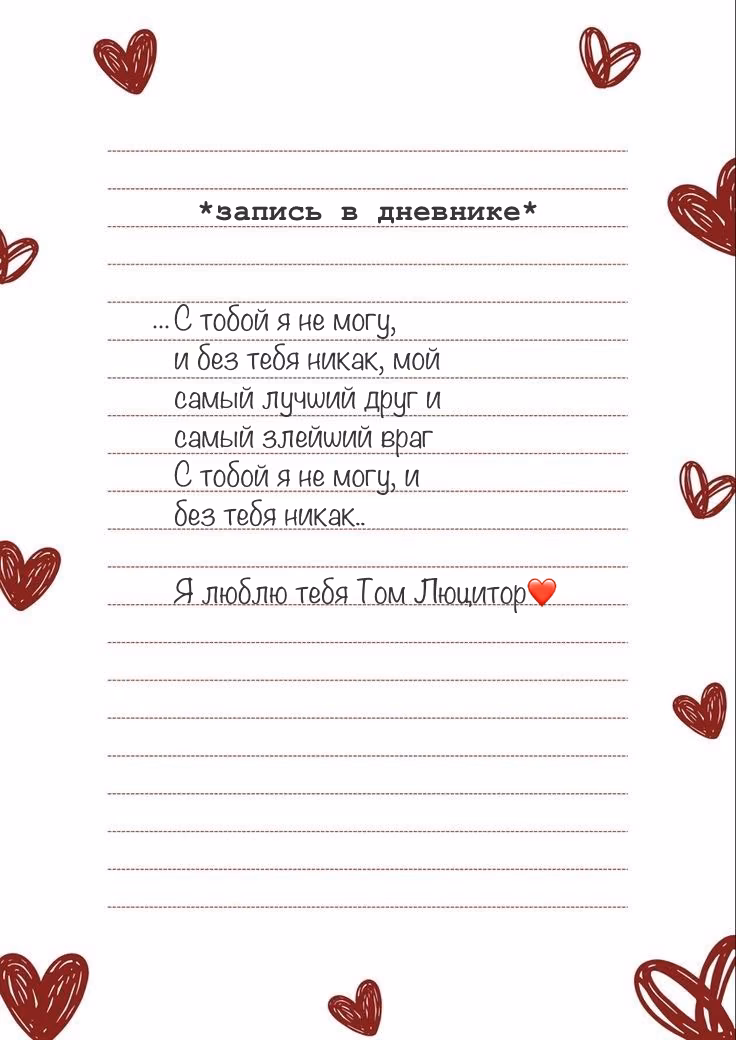 *запись в дневнике*
...С тобой я не могу,
и без тебя никак, мой
самый лучший друг и
самый злейший враг
С тобой я не могу, и
без тебя никак..
Я люблю тебя Том Люцитор❤️